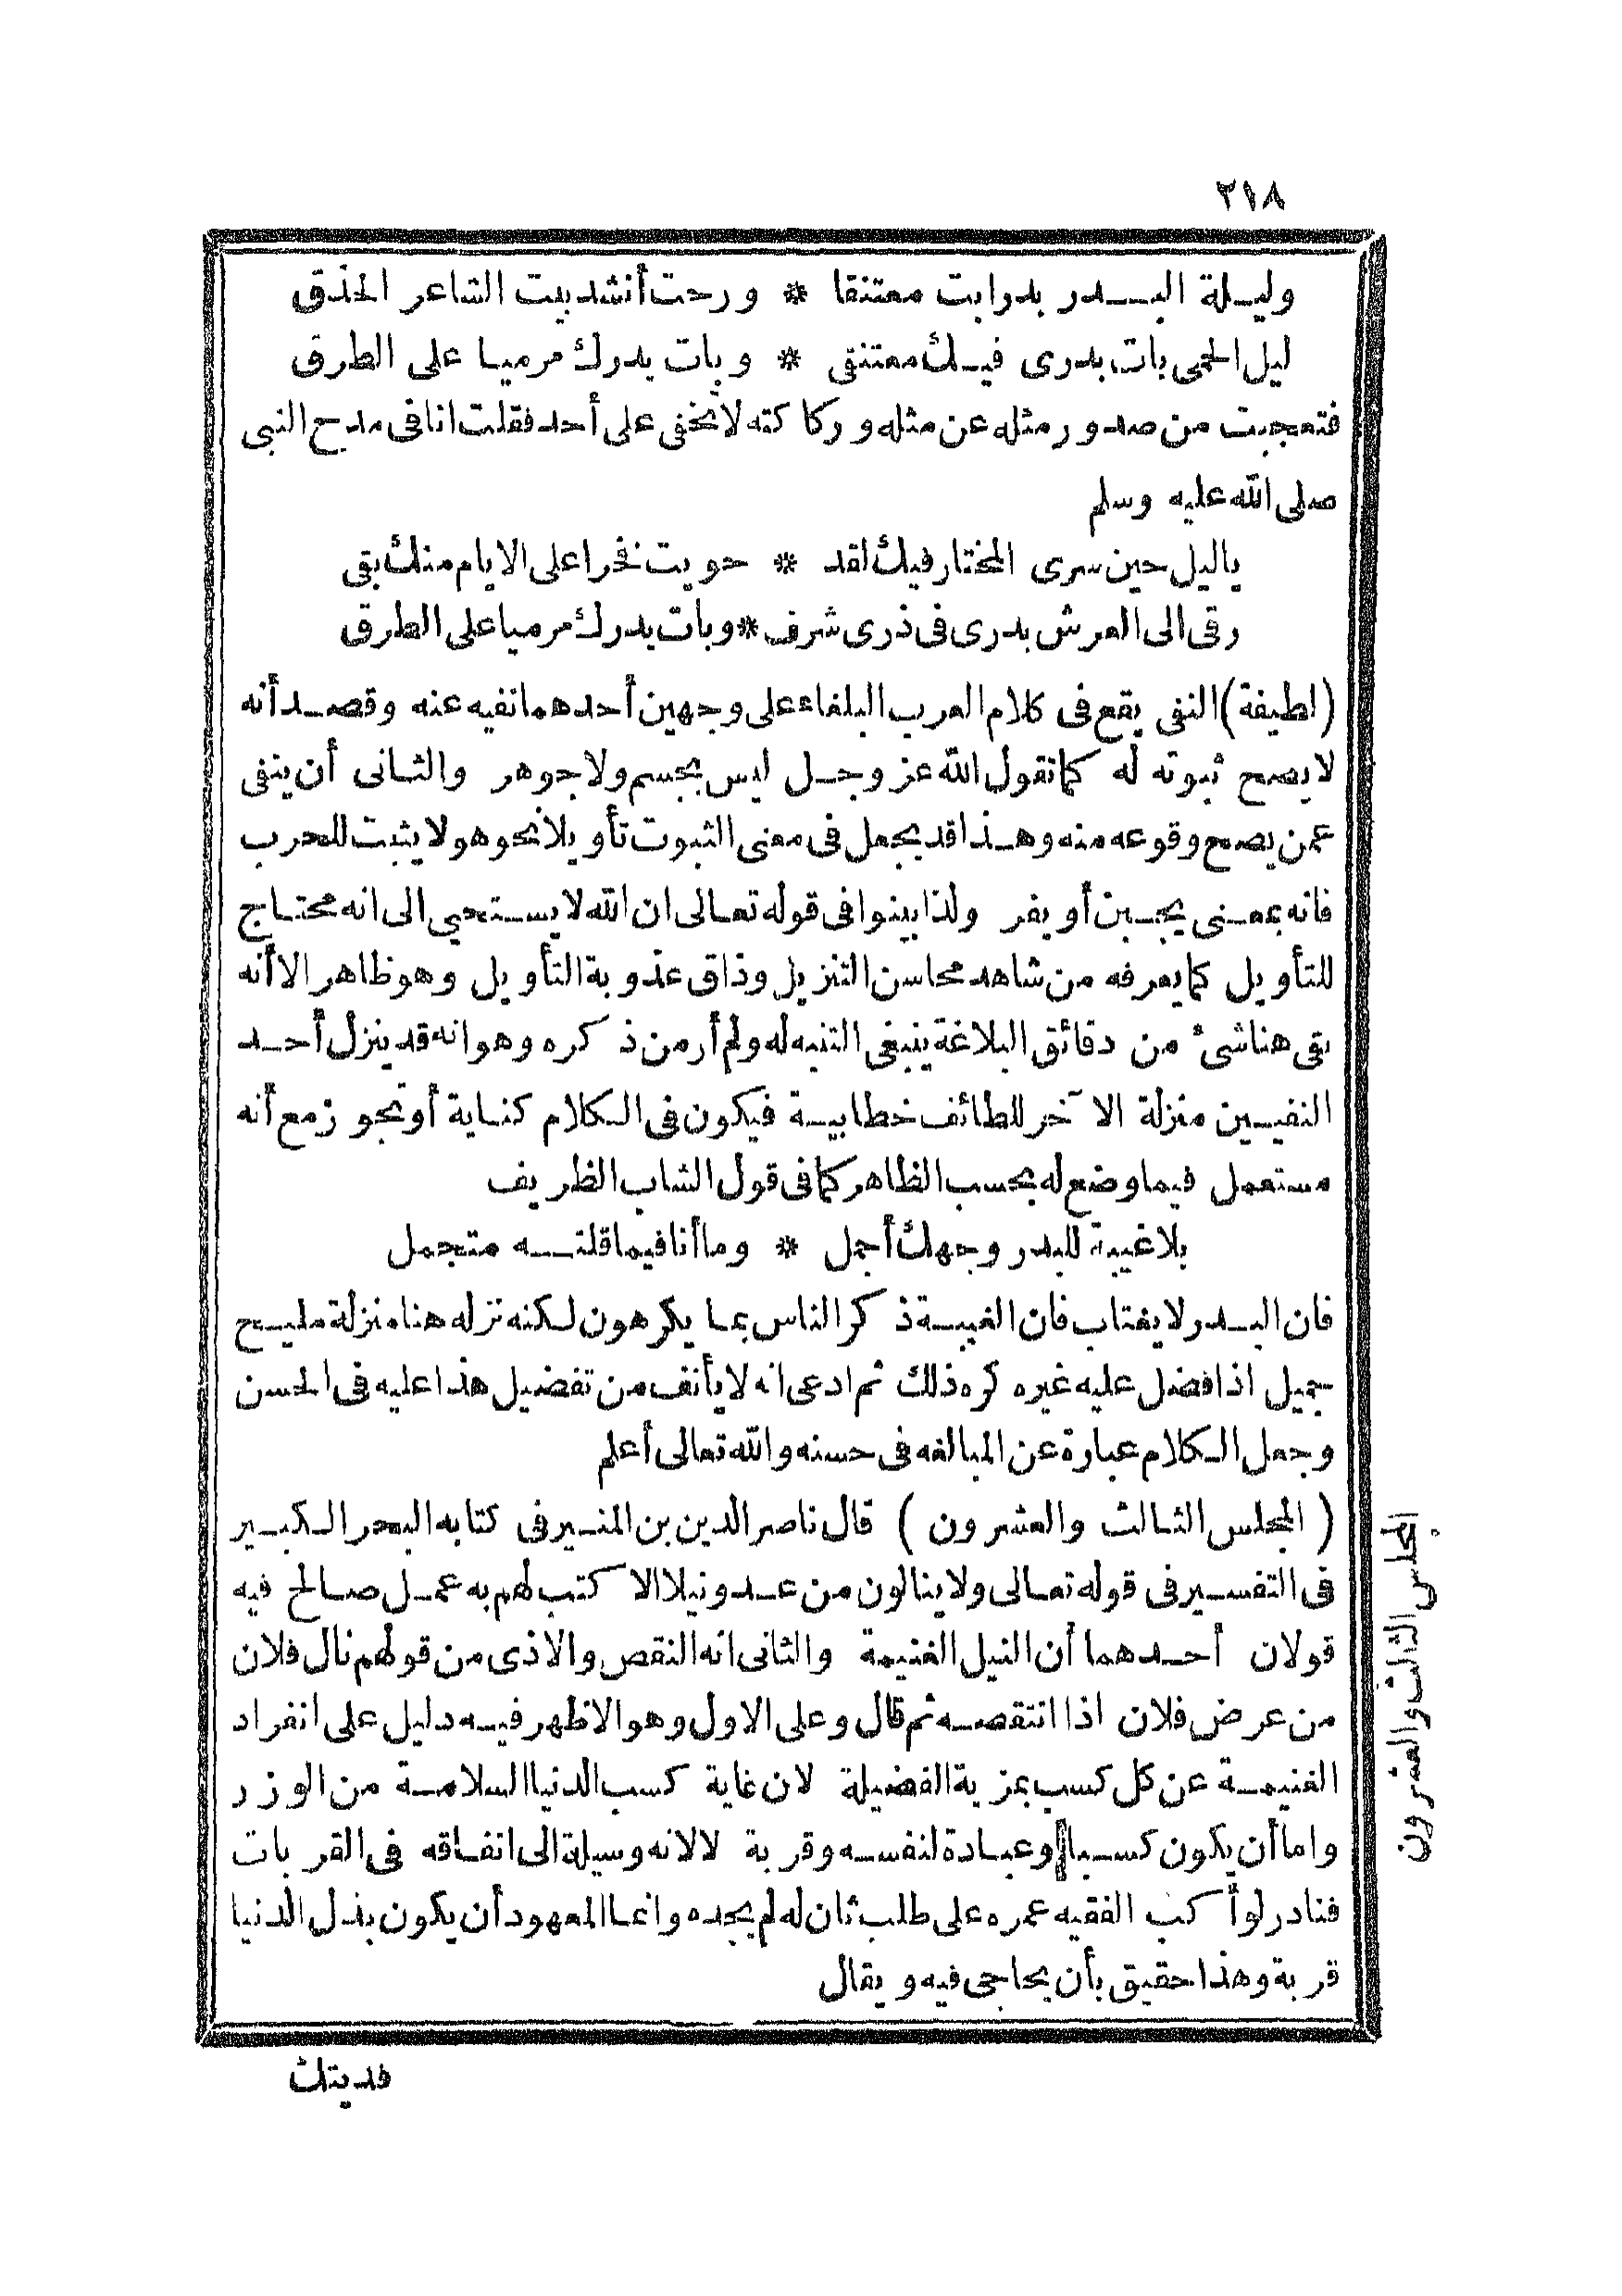 ٢١٨
وليلة البدر بدرا بت معتنقا * ورحت أنشد بيت الشاعر الحذق
ليل الحمى بات بدرى فيك معتنقى * وبات بدرك مرميا على الطرق
فتعجبت من صدور مثله عن مثله وركاكته لا تخفى على أحد فقلت انا فى مدح النبى
صلى الله عليه وسلم
ياليل حين سرى المختار فيك لقد * حويت فخرا على الايام منك بقى
رقى الى العرش بدرى فى ذرى شرف * وبات بدرك مرميا على الطرق
(لطيفة) النفى يقع فى كلام العرب البلغاء على وجهين أحدهما نفيه عنه وقصد أنه
لا يصح ثبوته له كما تقول الله عز وجل ليس بجسم ولا جوهر والثانى أن ينفى
عمن يصح وقوعه منه وهذا قد يجعل فى معنى الثبوت تأويلا نحو هو لا يثبت للحرب
فانه بمعنى يجبن أو يفر ولذا بينوا فى قوله تعالى ان الله لا يستحيي الى انه محتاج
للتأويل كما يعرفه من شاهد محاسن التنزيل وذاق عذوبة التأويل وهو ظاهر الا أنه
بقى هنا شئ من دقائق البلاغة ينبغى التنبه له ولم أر من ذكره وهو انه قد ينزل أحد
النفيين منزلة الآخر للطائف خطابية فيكون فى الكلام كناية أو تجوز مع أنه
مستعمل فيما وضع له بحسب الظاهر كما فى قول الشاب الظريف
بلا غيبة للبدر وجهك أجمل * وما أنا فيما قلته متجمل
فان البدر لا يغتاب فان الغيبة ذكر الناس بما يكرهون لكنه نزله هنا منزلة مليح
جميل اذا فضل عليه غيره كره ذلك ثم ادعى انه لا يأنف من تفضيل هذا عليه فى الحسن
وجعل الكلام عبارة عن المبالغه فى حسنه والله تعالى أعلم
( المجلس الثالث والعشرون ) قال ناصر الدين بن المنير فى كتابه البحر الكبير
فى التفسير فى قوله تعالى ولا ينالون من عدو نيلا الا كتب لهم به عمل صالح فيه
قولان أحدهما أن النيل الغنيمة والثانى انه النقص والاذى من قولهم نال فلان
من عرض فلان اذا انتقصه ثم قال وعلى الاول وهو الاظهر فيه دليل على انفراد
الغنيمة عن كل كسب بمزية الفضيلة لان غاية كسب الدنيا السلامة من الوزر
واما أن يكون كسبا وعبادة لنفسه وقربة لا لانه وسيلة الى انفاقه فى القربات
فنادر لو أكب الفقيه عمره على طلب ثان له لم يجده وانما المعهود أن يكون بذل الدنيا
قربة وهذا حقيق بأن يحاجى فيه ويقال
فديتك
المجلس الثالث والعشرون